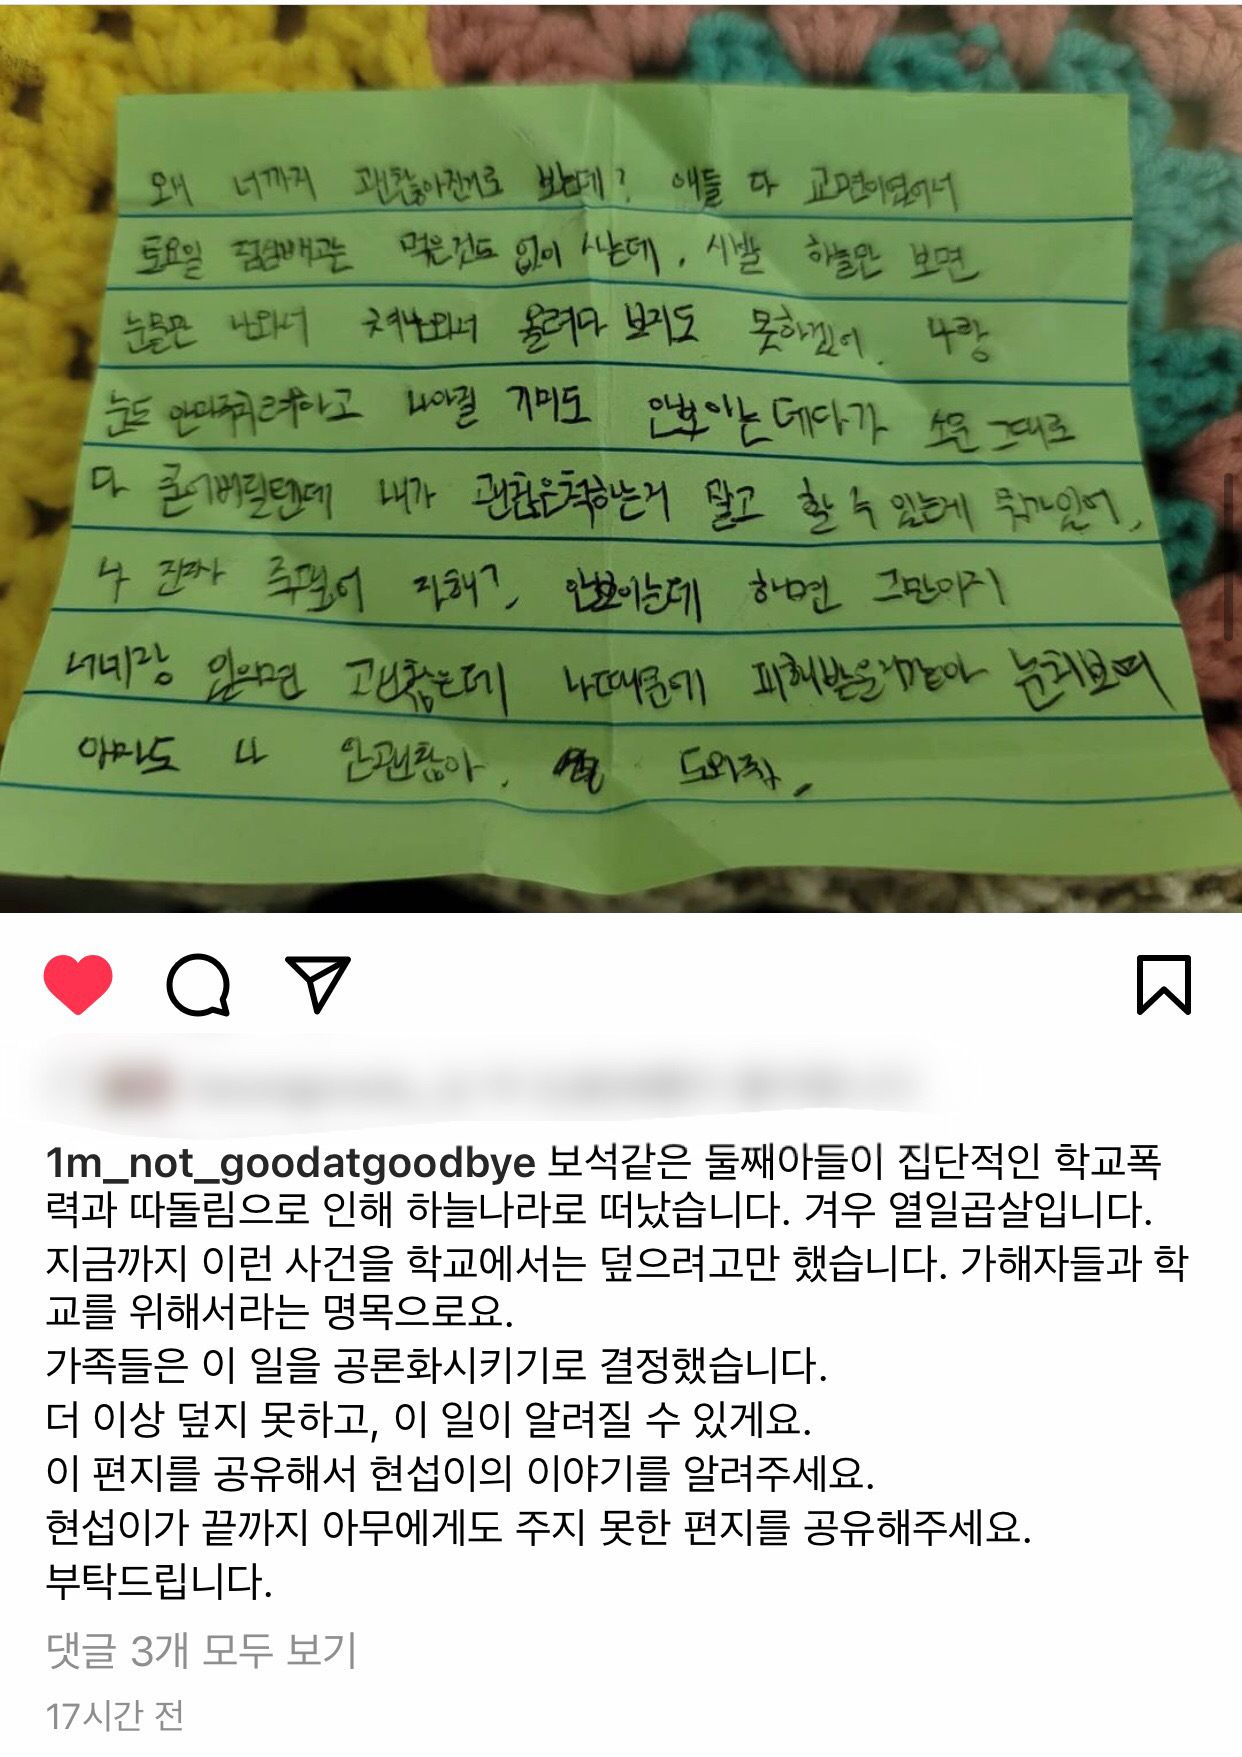 왜 너까지 괜찮아진거로 보는데? 애들 다 교면이였어서
토요일 점심빼고는 먹은것도 없이 사는데, 시발 하늘만 보면
눈물만 나와서 쳐나와서 올려다 보지도 못하겠어. 나랑
눈도 안마주귀려하고 나아질 기미도 안보이는데다가 소문 그대로
다 믿어버릴텐데 내가 괜찮은척하는거 말고 할 수 있는게 뭐가있어,
나 진짜 죽고싶어
안보이는데 하면 그만이지
너네랑 있으면 괜찮은데 나때문에 피해받을거같아 눈치보여
아마도 나 안괜찮아. 도와줘,
1m_not_goodatgoodbye 보석같은 둘째아들이 집단적인 학교폭
력과 따돌림으로 인해 하늘나라로 떠났습니다. 겨우 열일곱살입니다.
지금까지 이런 사건을 학교에서는 덮으려고만 했습니다. 가해자들과 학
교를 위해서라는 명목으로요.
가족들은 이 일을 공론화시키기로 결정했습니다.
더 이상 덮지 못하고, 이 일이 알려질 수 있게요.
이 편지를 공유해서 현섭이의 이야기를 알려주세요.
현섭이가 끝까지 아무에게도 주지 못한 편지를 공유해주세요.
부탁드립니다.
댓글 3개 모두 보기
17시간 전